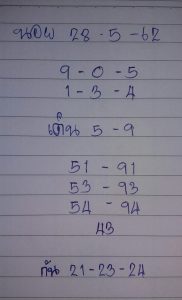 นอย 28-5-62
9-0-5
1-3-4
เด่น 5-9
51-91
53-93
54-94
43
กัน 21-23-24